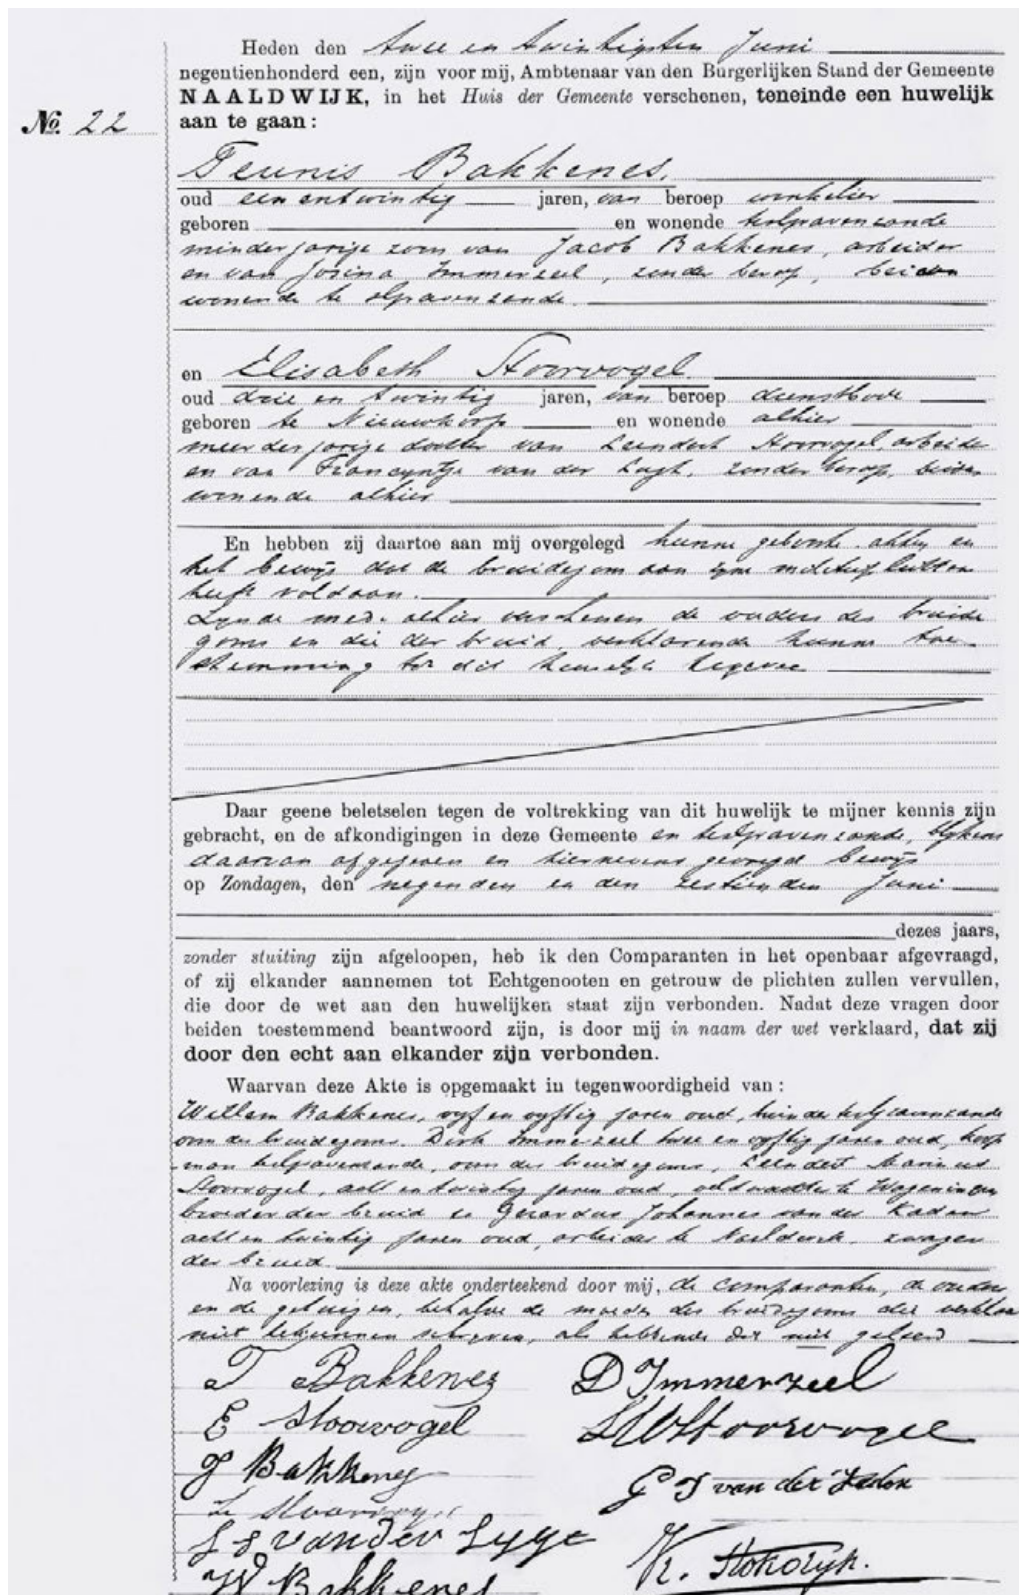 Heden den twee en twintigsten Juni
negentienhonderd een, zijn voor mij, Ambtenaar van den Burgerlijken Stand der Gemeente
NAALDWIJK, in het Huis der Gemeente verschenen, teneinde een huwelijk
№ 22
aan te gaan:
Teunis Bakkenes,
oud een en twintig jaren, van beroep winkelier
geboren en wonende te 's Gravenzande
minderjarige zoon van Jacob Bakkenes, arbeider
en van Josina Immerzeel, zonder beroep, beiden
wonende te 's Gravenzande
en Elisabeth Stoorvogel
oud drie en twintig jaren, van beroep dienstbode
geboren te Nieuwkoop en wonende alhier
meerderjarige dochter van Leendert Stoorvogel, arbeider
en van Francyntje van der Lugt, zonder beroep, beiden
wonende alhier
En hebben zij daartoe aan mij overgelegd hunne geboorte akten en
het bewijs dat de bruidegom aan zijne militiepligten
heeft voldaan.
Zijnde mede alhier verschenen de ouders des bruide
goms en die der bruid, verklarende hunne toe
stemming tot dit huwelijk te geven
Daar geene beletselen tegen de voltrekking van dit huwelijk te mijner kennis zijn
gebracht, en de afkondigingen in deze Gemeente en te 's Gravenzande, blijkens
daarvan afgegeven en hiernevens gevoegd bewijs
op Zondagen, den negenden en den zestienden Juni
dezes jaars,
zonder stuiting zijn afgeloopen, heb ik den Comparanten in het openbaar afgevraagd,
of zij elkander aannemen tot Echtgenooten en getrouw de plichten zullen vervullen,
die door de wet aan den huwelijken staat zijn verbonden. Nadat deze vragen door
beiden toestemmend beantwoord zijn, is door mij in naam der wet verklaard, dat zij
door den echt aan elkander zijn verbonden.
Waarvan deze Akte is opgemaakt in tegenwoordigheid van:
Willem Bakkenes, vyf en vyftig jaren oud, te 's Gravenzande
oom des bruidegoms, Dirk Immerzeel twee en vyftig jaren oud, koop
man te 's Gravenzande, oom des bruidegoms, Leendert Marinus
Stoorvogel, acht en twintig jaren oud, veldwachter te Wageningen
broeder der bruid en Gerardus Johannes van der Kaden
acht en twintig jaren oud, arbeider te Naaldwijk, zwager
der bruid.
Na voorlezing is deze akte onderteekend door mij, de comparanten, de ouders
en de getuigen, behalve de moeder des bruidegoms die verklaarde
niet te kunnen schrijven, als hebbende dit niet geleerd
T Bakkenes D Immerzeel
E Stoorvogel L M Stoorvogel
J Bakkenes G J van der
L Stoorvogel
van der
W Bakkenes K.